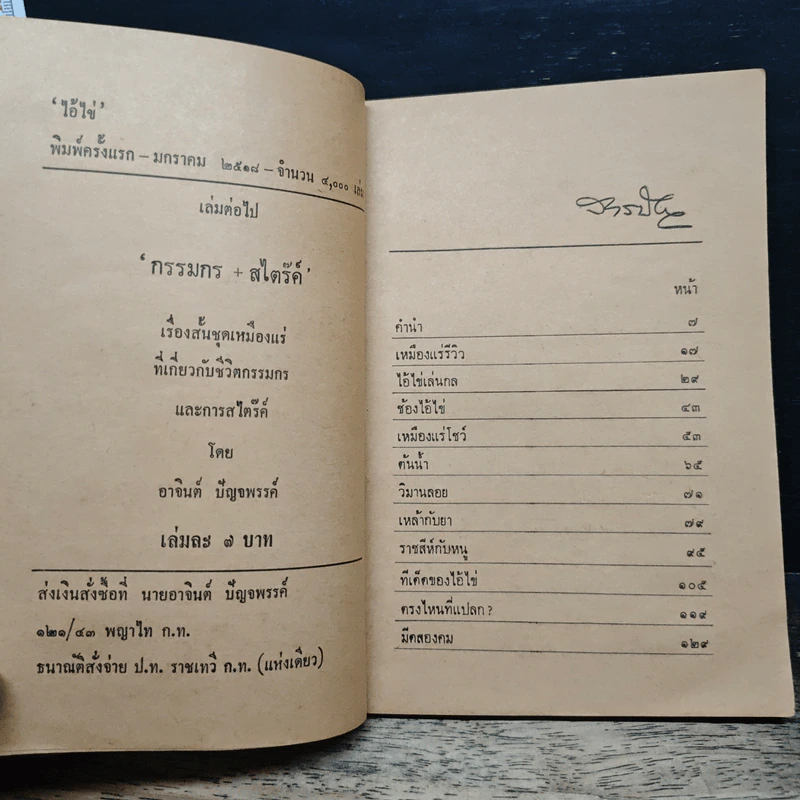 'ไอ้ไข่'
พิมพ์ครั้งแรก – มกราคม ๒๕๑๘ – จำนวน ๔,๐๐๐ เล่ม
เล่มต่อไป
'กรรมกร + สไตร๊ค์'
เรื่องสั้นชุดเหมืองแร่
ที่เกี่ยวกับชีวิตกรรมกร
และการสไตร๊ค์
โดย
อาจินต์ ปัญจพรรค์
เล่มละ ๗ บาท
ส่งเงินสั่งซื้อที่ นายอาจินต์ ปัญจพรรค์
๑๒๑/๔๓ พญาไท ก.ท.
ธนาณัติสั่งจ่าย ป.ท. ราชเทวี ก.ท. (แห่งเดียว)
สารบัญ
หน้า
คำนำ ๗
เหมืองแร่รีวิว ๑๗
ไอ้ไข่เล่นกล ๒๙
ซ้องไอ้ไข่ ๔๓
เหมืองแร่โชว์ ๕๓
ต้นน้ำ ๖๕
วิมานลอย ๗๑
เหล้ากับยา ๗๙
ราชสีห์กับหนู ๙๕
ทีเด็ดของไอ้ไข่ ๑๐๕
ตรงไหนที่แปลก? ๑๑๙
มีดสองคม ๑๒๙